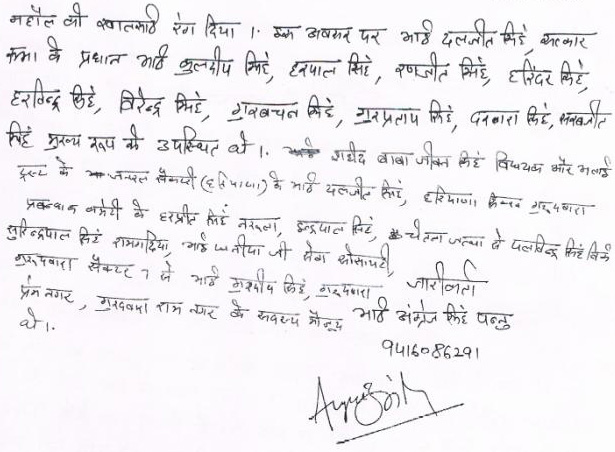 माहौल को खालसाई रंग दिया । इस अवसर पर भाई दलजीत सिंह, सत्कार
सभा के प्रधान भाई कुलदीप सिंह, हरपाल सिंह, रणजीत सिंह, हरिंदर सिंह,
हरविन्द्र सिंह, विरेन्द्र सिंह, गुरबचन सिंह, गुरप्रताप सिंह, दरबारा सिंह,
सिंह मुख्य रूप से उपस्थित थे । शहीद बाबा जीवन सिंह विद्यक और भलाई
ट्रस्ट के जनरल सैक्टरी (हरियाणा) के भाई दलजीत सिंह, हरियाणा सिख गुरुद्वारा
प्रबन्धक कमेटी के हरप्रीत सिंह नरूला, इन्द्रपाल सिंह, चेतना जत्था से पलविन्द्र सिंह
सुरिन्द्रपाल सिंह रामगढिया, भाई घनैया जी सेवा सोसायटी,
गुरुद्वारा सैक्टर 7 से भाई गुरदीप सिंह, गुरुद्वारा जारीकर्ता
प्रेम नगर, गुरुद्वारा राम नगर के सदस्य मौजूद भाई अंग्रेज सिंह पन्नु
थे ।
9416086291